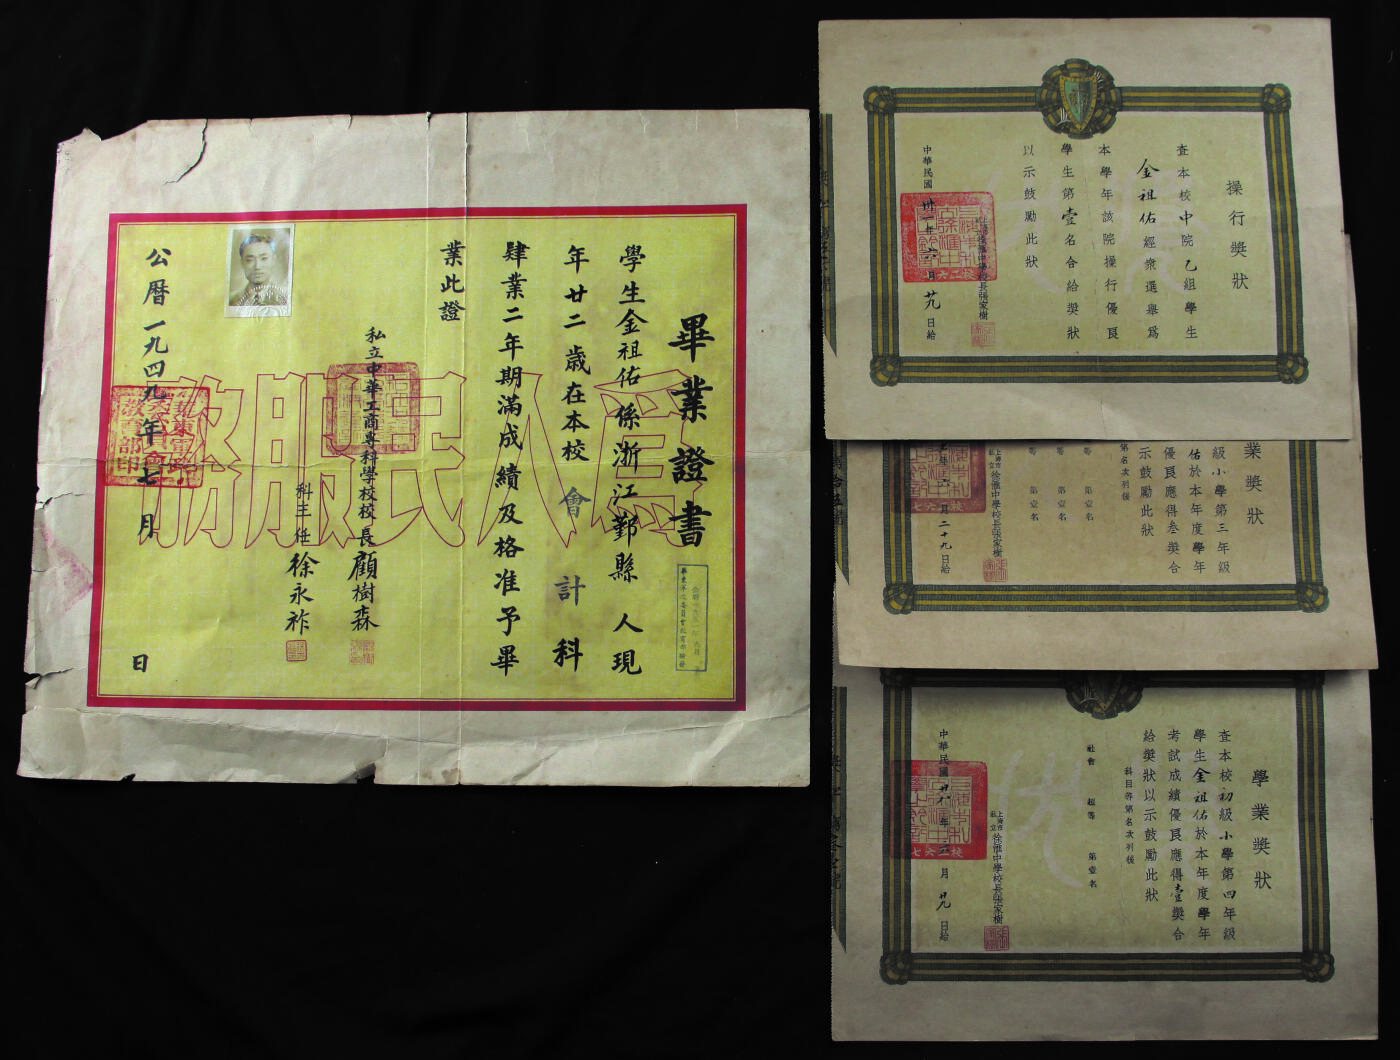 畢業證書
學生金祖佑係浙江鄞縣 人現
年廿二歲在本校 會計科
肄業二年期滿成績及格准予畢
業此證
私立中華工商專科學校校長顧樹森
科主任徐永祚
公曆一九四九年七月 日
為人民服務
操行獎狀
查本校中院乙組學生
金祖佑經衆選舉為
本學年該院操行優良
學生第壹名合給獎狀
以示鼓勵此狀
上海市私立徐滙中學校長張家樹
中華民國卅一年六月廿九日給
業獎狀
級小學第三年級
佑於本年度學年
優良應得叁獎合
示鼓勵此狀
第名次列後
等 第壹名
等 第壹名
等 第壹名
上海市私立徐滙中學校長張家樹
年六月二十九日給
學業獎狀
查本校初級小學第四年級
學生金祖佑於本年度學年
考試成績優良應得壹獎合
給獎狀以示鼓勵此狀
科目等第名次列後
社會 超等 第壹名
上海市私立徐滙中學校長張家樹
中華民國廿八年六月廿九日給